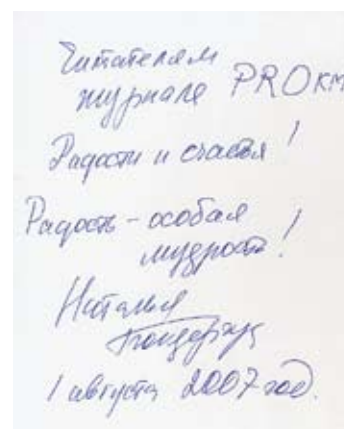 Читателям
журнала PROкм
Радости и счастья!
Радость - особая
мудрость!
Наталья
Бондарчук
1 августа 2007 год.